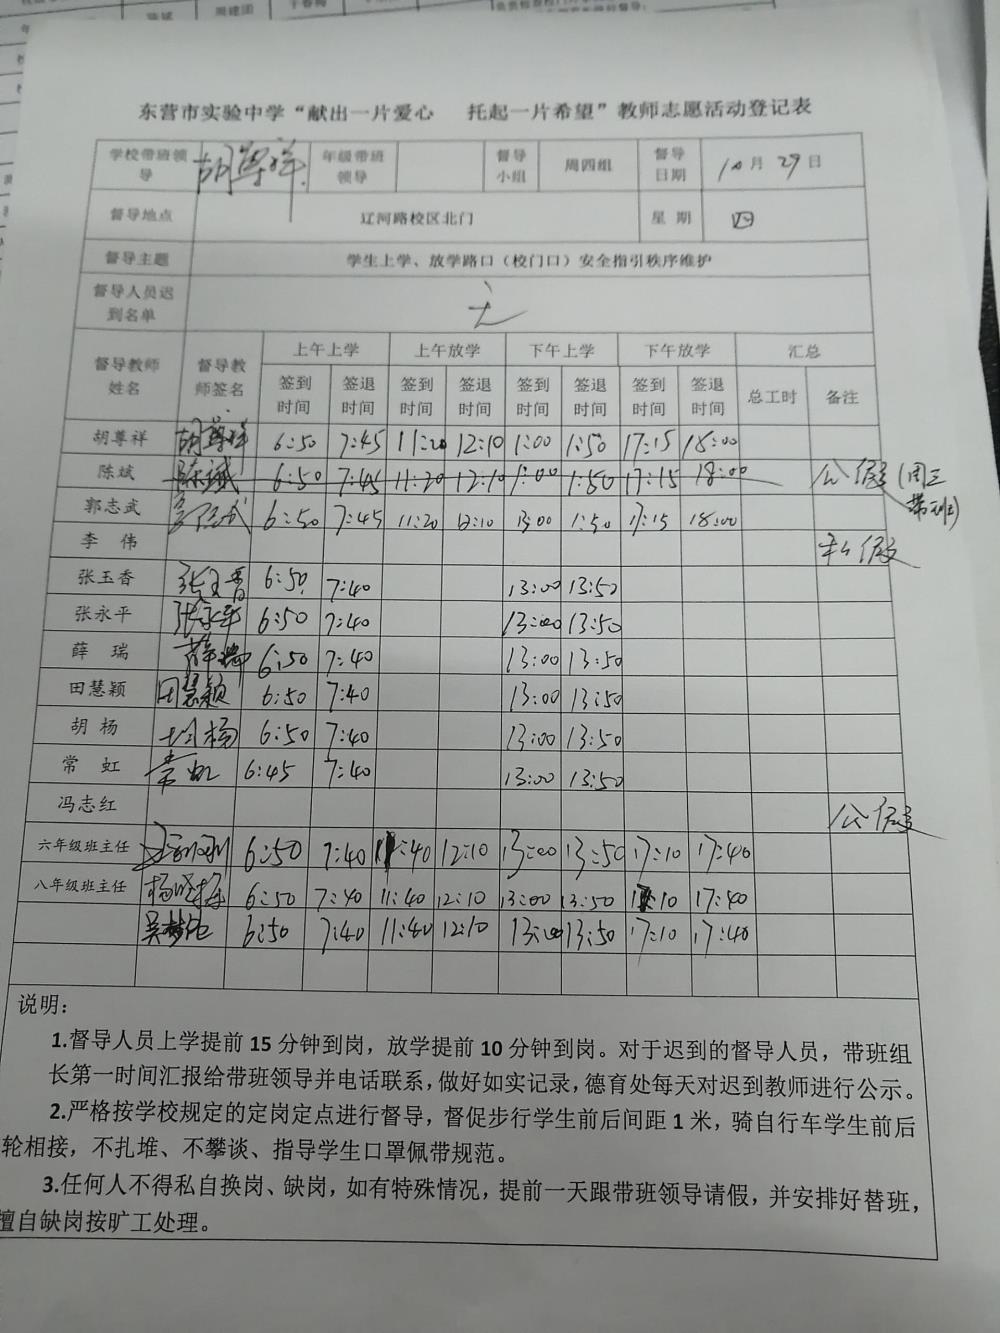 东营市实验中学“献出一片爱心 托起一片希望”教师志愿活动登记表
学校带班领导 胡尊祥 年级带班领导 督导小组 周四组 督导日期 10月29日
督导地点 辽河路校区北门 星 期 四
督导主题 学生上学、放学路口（校门口）安全指引秩序维护
督导人员迟到名单 无
督导教师姓名 督导教师签名 上午上学 上午放学 下午上学 下午放学 汇总
签到时间 签退时间 签到时间 签退时间 签到时间 签退时间 签到时间 签退时间 总工时 备注
胡尊祥 胡尊祥 6:50 7:45 11:20 12:10 1:00 1:50 17:15 18:00
陈斌 陈斌 6:50 7:45 11:20 12:10 1:00 1:50 17:15 18:00 公假(周三带班)
郭志武 郭志武 6:50 7:45 11:20 12:10 13:00 1:50 17:15 18:00
李 伟 私假
张玉香 张玉香 6:50 7:40 13:00 13:50
张永平 张永平 6:50 7:40 13:00 13:50
薛 瑞 薛瑞 6:50 7:40 13:00 13:50
田慧颖 田慧颖 6:50 7:40 13:00 13:50
胡 杨 胡杨 6:50 7:40 13:00 13:50
常 虹 常虹 6:45 7:40 13:00 13:50
冯志红 公假
六年级班主任 6:50 7:40 11:40 12:10 13:00 13:50 17:10 17:40
八年级班主任 6:50 7:40 11:40 12:10 13:00 13:50 17:10 17:40
6:50 7:40 11:40 12:10 13:00 13:50 17:10 17:40
说明：
1.督导人员上学提前 15 分钟到岗，放学提前 10 分钟到岗。对于迟到的督导人员，带班组
长第一时间汇报给带班领导并电话联系，做好如实记录，德育处每天对迟到教师进行公示。
2.严格按学校规定的定岗定点进行督导，督促步行学生前后间距 1 米，骑自行车学生前后
轮相接，不扎堆、不攀谈、指导学生口罩佩带规范。
3.任何人不得私自换岗、缺岗，如有特殊情况，提前一天跟带班领导请假，并安排好替班，
擅自缺岗按旷工处理。